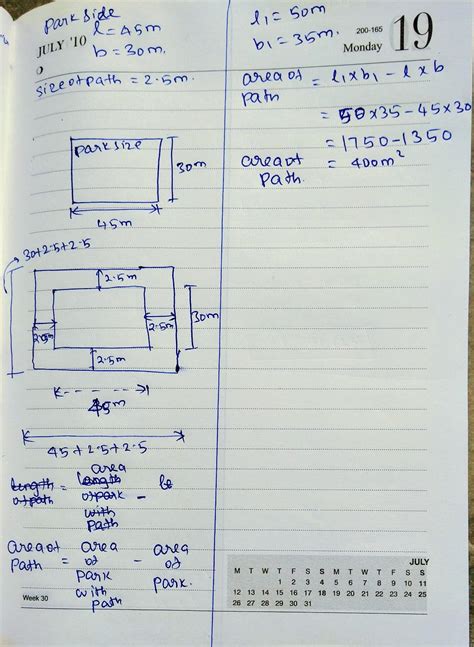 Park side
l = 45m
JULY '10
b = 30m.
size of path = 2.5m.
Park size
30m
45m
30+2.5+2.5
2.5m
2.5m
2.5m
30m
2.5m
45m
45 + 2.5 + 2.5
length of path = length area of park with path - le
area of path = area of park with path - area of park.
Week 30
l1 = 50m
b1 = 35m.
200-165
Monday 19
area of path = l1 x b1 - l x b
= 50 x 35 - 45 x 30
= 1750 - 1350
area of path. = 400m²
JULY
M T W T F S S M T W T F S S
1 2 3 4 5 6 7 8 9 10 11
12 13 14 15 16 17 18 19 20 21 22 23 24 25
26 27 28 29 30 31